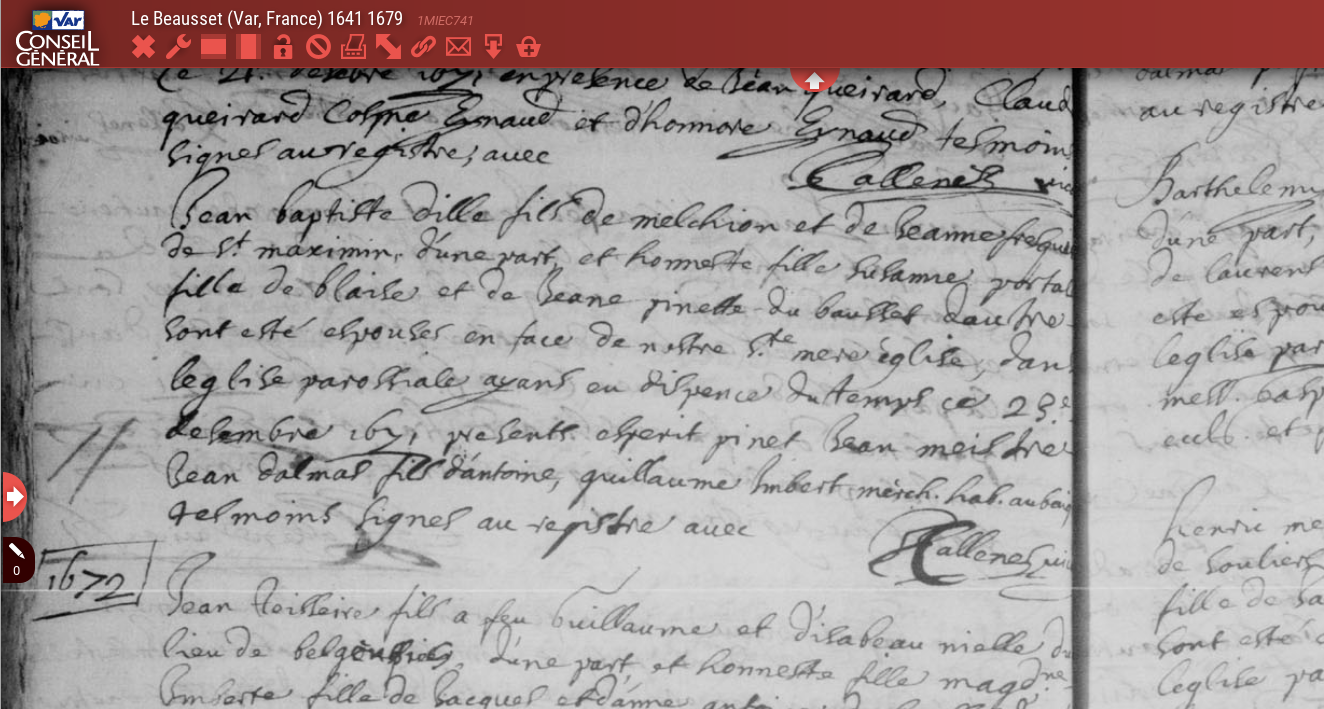 VAR
CONSEIL
GÉNÉRAL
Le Beausset (Var, France) 1641 1679 1MIEC741
0
ce 21. desebre 1671 en presence de Jean queirard, Claud
queirard Cosme Eynaud et d'honnore Eynaud tesmoins
signes au registre, avec
Callenes
Jean baptiste dille fils de melchion et de Jeanne
de St maximin, d'une part, et honneste fille susanne portal
fille de blaise et de Jeane pinette du bausset d'autre
sont esté espouses en face de nostre S.te mere église, dans
leglise parossiale ayans eu dispence du temps ce 23e
desembre 1671 presents esperit pinet Jean meistre
Jean dalmas fils d'antoine, guillaume Imbert merch. hab. au
tesmoins signes au registre avec
Callenes
1672
Jean teisseire fils a feu Guillaume et d'isabeau nielle du
lieu de belgensier, d'une part, et honneste fille magd.ne
Imberte fille de Jacques et d'anne
au registre
Barthelemy
d'une part,
de laurens
este espou
leglise par
mess.
et
henric me
de souliers
fille de
sont esté
leglise pa